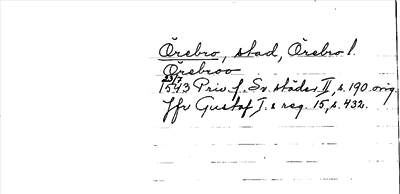 Örebro, stad, Örebro l.
Örebroo
23/7
1543 Priv. f. Sv. städer II, s. 190 orig.
Jfr Gustaf I:s reg. 15, s. 432.